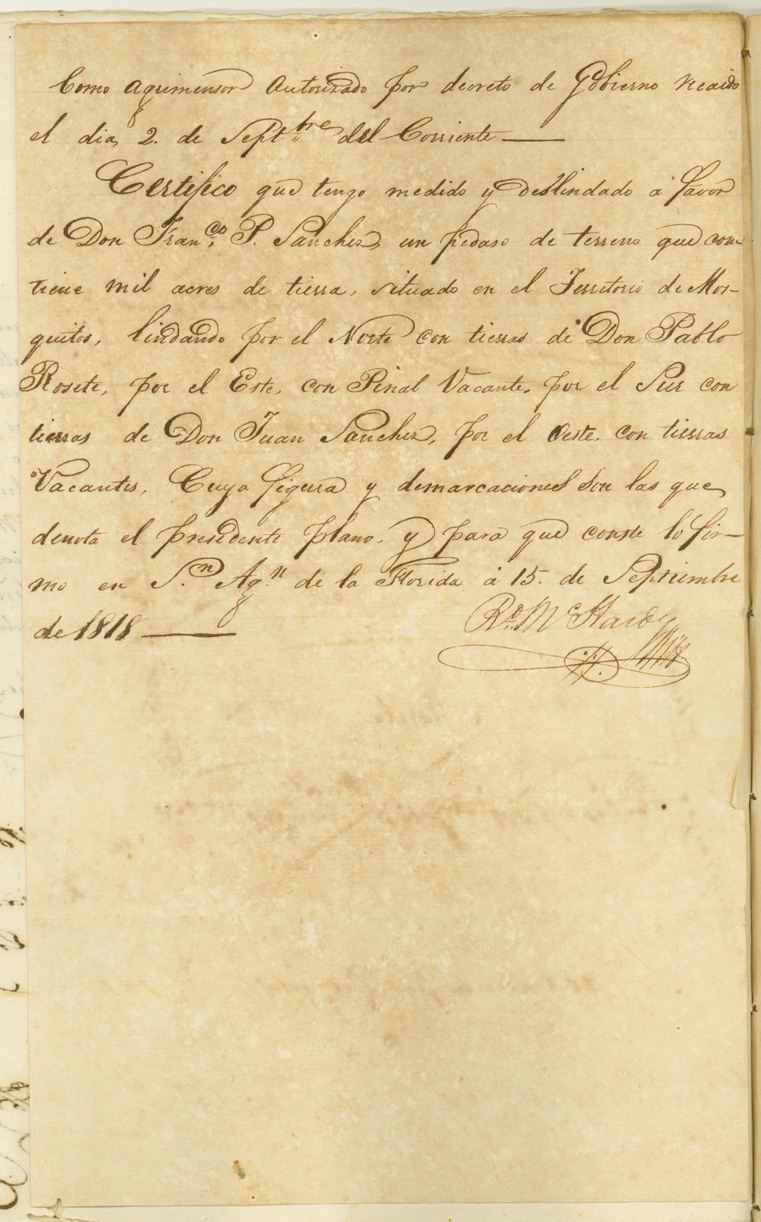 Como agrimensor Autorizado por decreto de Gobierno recaido
el dia 2. de Septbre del Corriente——
Certifico que tengo medido y deslindado à favor
de Don Franco P. Sanchez, un pedaso de terreno que con-
tiene mil acres de tierra, situado en el Territorio de Mos-
quitos, lindando por el Norte con tierras de Don Pablo
Rosete, por el Este, con Pinal Vacante, por el Sur con
tierras de Don Juan Sanchez, por el Oeste, con tierras
Vacantes, Cuya figura y demarcaciones son las que
denota el presidente plano. y para que conste lo fir-
mo en Sn Agn de la Florida à 15. de Septiembre
de 1818——
Rt McHardy